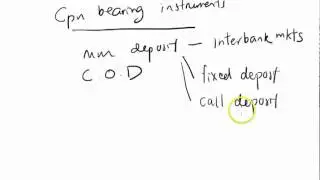 Cpn bearing instruments
mm deposit – interbank mkts
C O D
fixed deposit
call deposit